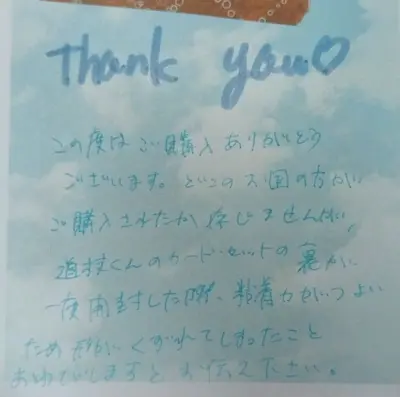 Thank you♡
この度はご購入ありがとう
ございます。どこのお国の方が
ご購入されたか存じませんが、
道枝くんのカードセットの裏が
一度開封した際、粘着力がつよい
ため形がくずれてしまったこと
おわびしますとお伝え下さい。